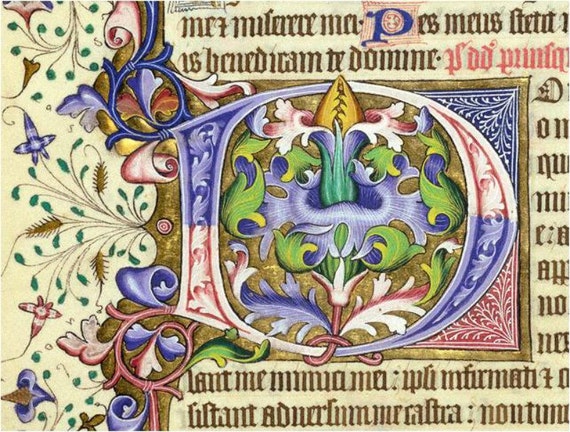 me et miserere mei: Pes meus stetit
us benedicam te domine. ps dd priusq
D
o
que
mi
e: a
app
no
nex
lant me inimici mei: ipsi infirmati et c
sistant adversum me castra: non tim